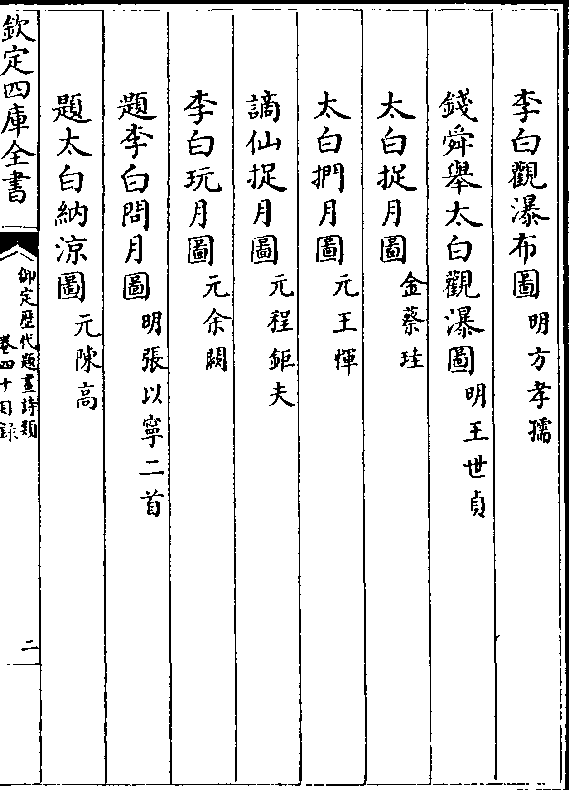 李白觀瀑布圖 明方孝孺
錢舜舉太白觀瀑圖 明王世貞
太白捉月圖 金蔡珪
太白捫月圖 元王惲
謫仙捉月圖 元程鉅夫
李白玩月圖 元余闕
題李白問月圖 明張以寧二首
題太白納涼圖 元陳高
欽定四庫全書
御定歷代題畫詩類
卷四十目錄
二